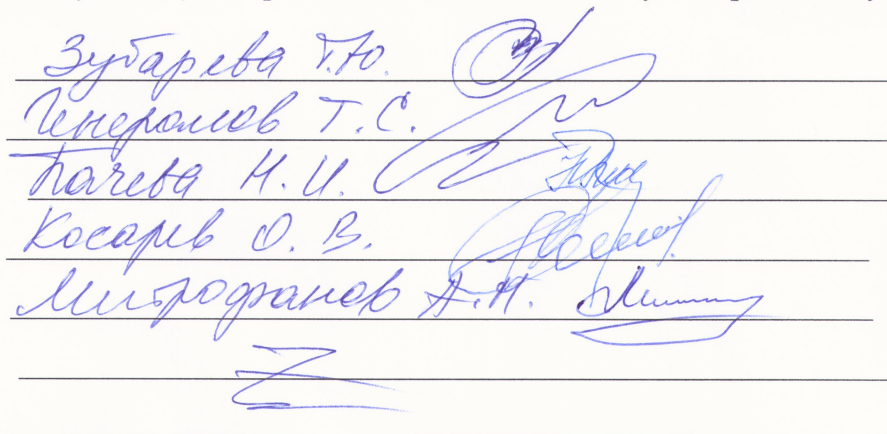 Зубарева Т.Ю.
Генералов Т.С.
Качева Н.И.
Косарев О.В.
Митрофанов А.Н.